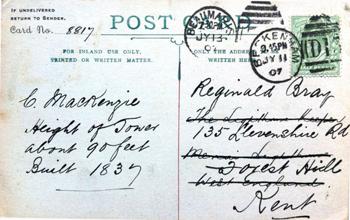 IF UNDELIVERED
RETURN TO SENDER.
Card No. 8817
POST CARD
FOR INLAND USE ONLY,
PRINTED OR WRITTEN MATTER.
ONLY THE ADDRESS
WRITTEN HERE
C. MacKenzie
Height of Tower
about 90 feet
Built 1837
JY 13
07
9.15PM
JY 11
07
Reginald Bray
The Lighthouse Keeper
135 Devonshire Rd
Forest Hill
West England
Kent